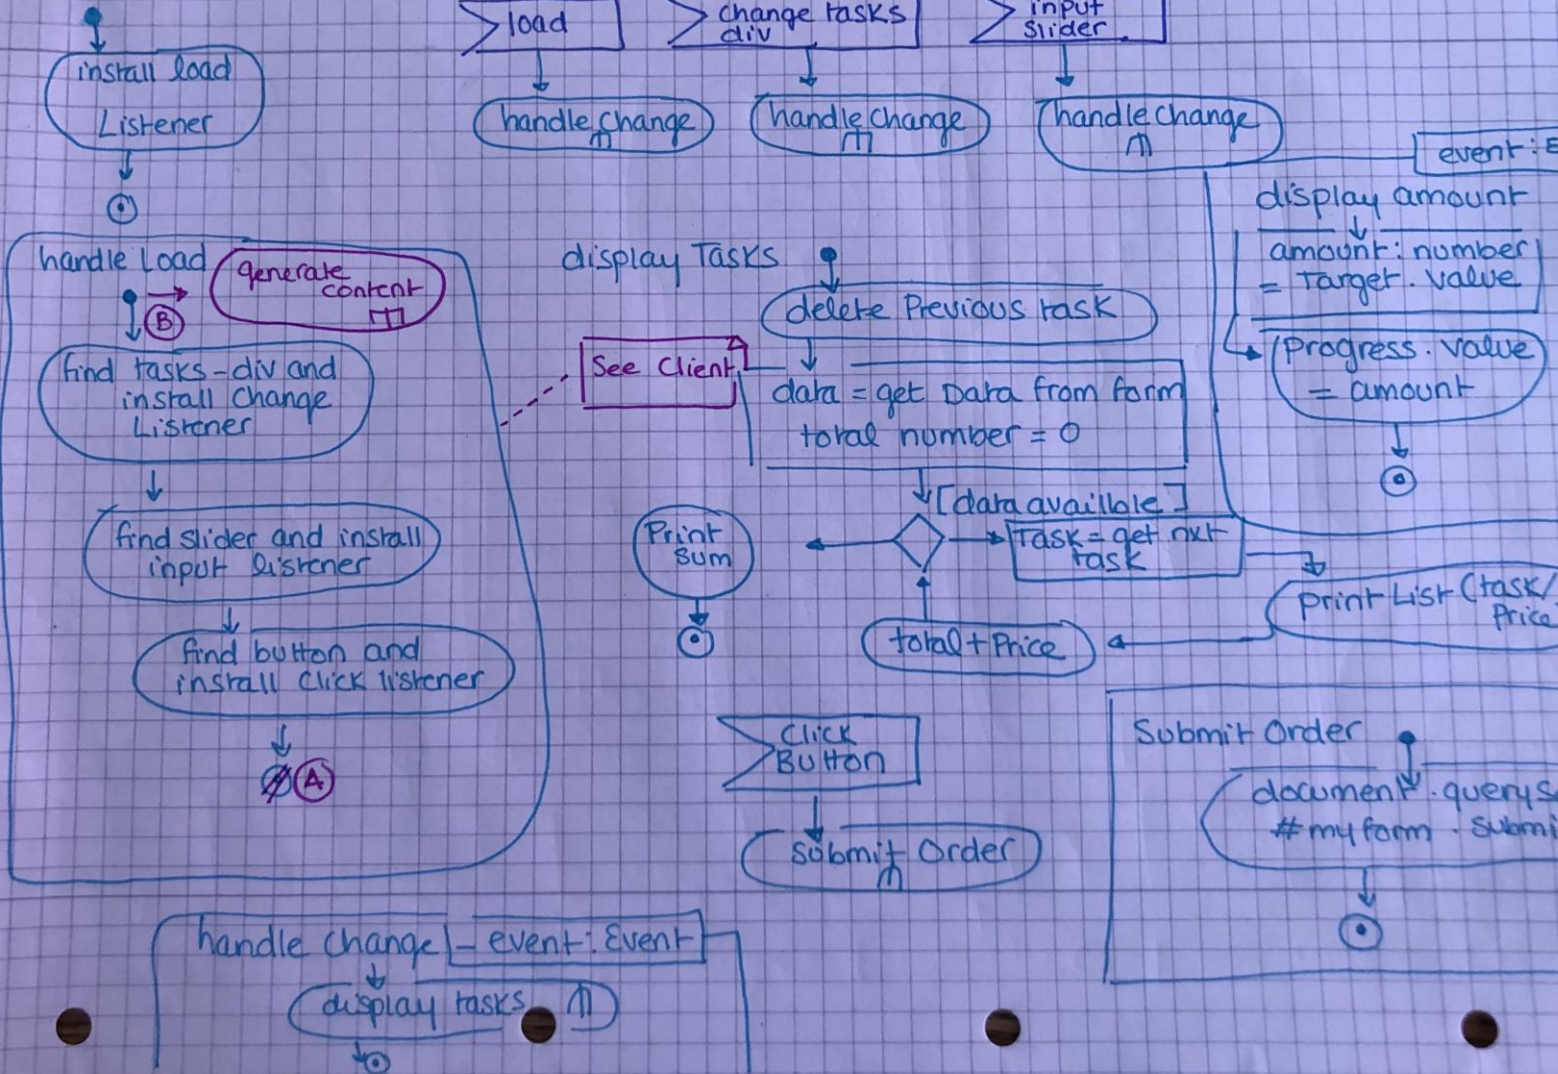 install load
Listener
load
change tasks
div
input
slider
handle change
handle change
handle change
event : E
display amount
amount : number
= Target . value
Progress . value
= amount
handle Load
generate
content
B
find tasks-div and
install Change
Listener
find slider and install
input Listener
find button and
install click listener
A
See Client
display Tasks
delete Previous task
data = get Data from form
total number = 0
[data availlble]
Task = get nxt
task
Print
sum
print List (task/
Price
total + Price
Click
Button
submit Order
Submit Order
document . queryS
# my form . Submi
handle change - event : Event
display tasks